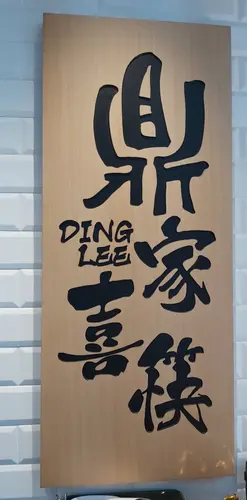 鼎
DING
LEE
家
喜
筷